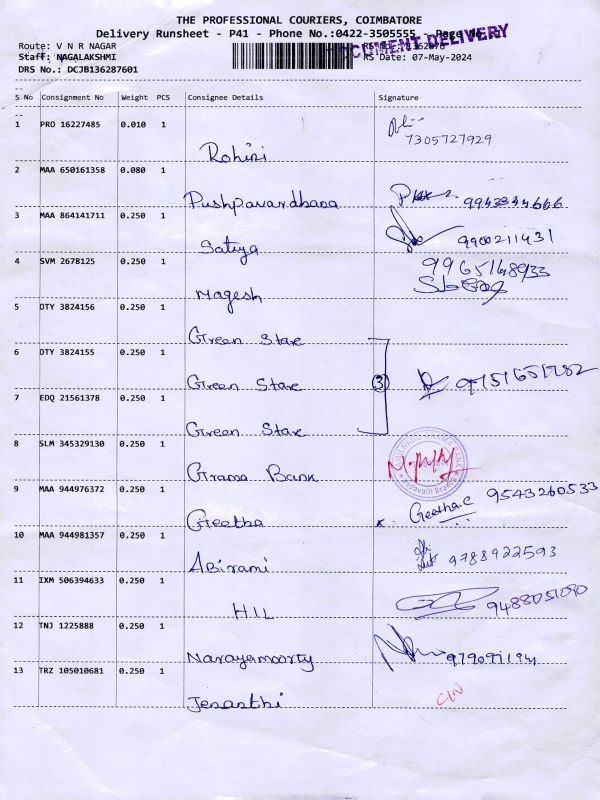 THE PROFESSIONAL COURIERS, COIMBATORE
Delivery Runsheet - P41 - Phone No.:0422-3505555 - Page No.
DOCUMENT DELIVERY
Route: V N R NAGAR
Staff: NAGALAKSHMI RS Date: 07-May-2024
DRS No.: DCJB136287601
S No Consignment No Weight PCS Consignee Details Signature
1 PRO 16227485 0.010 1 Rohini 7305727929
2 MAA 650161358 0.080 1 Pushpavardhana 9943844666
3 MAA 864141711 0.250 1 Satiya 9900211431
4 SVM 2678125 0.250 1 Magesh 9965148933
5 DTY 3824156 0.250 1 Green Star
6 DTY 3824155 0.250 1 Green Star 3 9751651782
7 EDQ 21561378 0.250 1 Green Star
8 SLM 345329130 0.250 1 Grama Bank
9 MAA 944976372 0.250 1 Geetha Geetha.C 9543260533
10 MAA 944981357 0.250 1 Abirami 9788922593
11 IXM 506394633 0.250 1 HIL 9488051090
12 TNJ 1225888 0.250 1 Narayamoorty
13 TRZ 105010681 0.250 1 Jenanthi